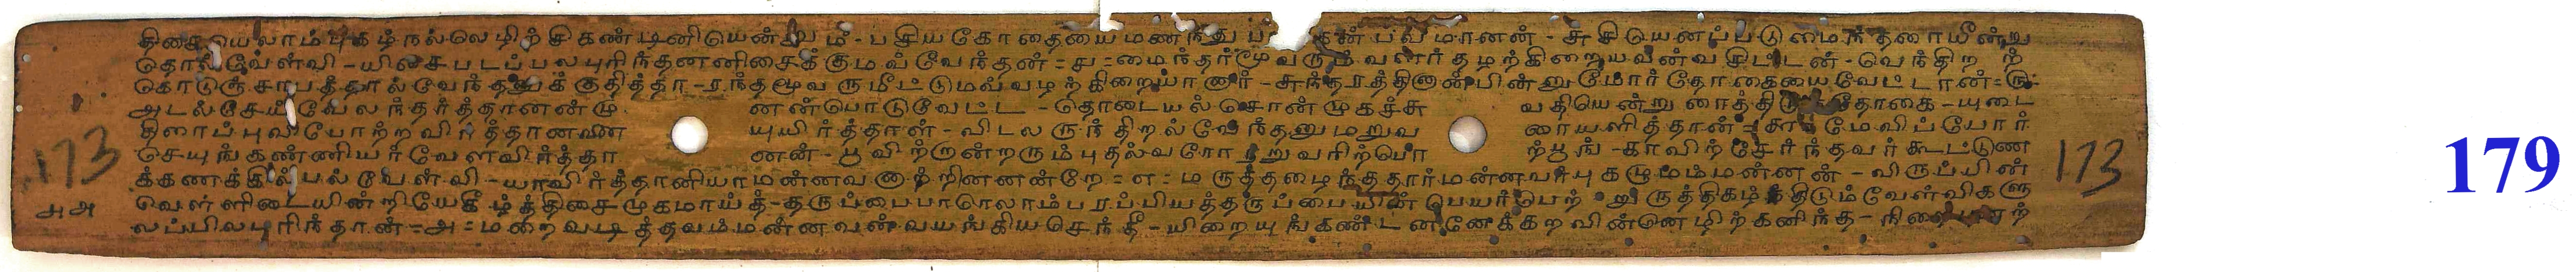 திசையெலாம் புகழ்நல்லெழிற்சிகண்டினியென்னும் - பசியகோதையை மணந்து ப கன் பவமானன் - சுசியெனப்படுமைந்தரையீன்று
தொல் வேள்வி - யிசைபடப்பலபுரிந்தனனிசைக்குமவ்வேந்தன் = ச = மைந்தர்மூவரும் வளர் தழற்கிறையவன்வசிட்டன் - வெந்திற ற்
கொடுஞ்சாபத்தால்வேந்த க்குதித்தா - ரந்தமூவருமீட்டுமவ்வழற்கிறையானார் - சுந்தரத்தினான்பின்னுமோர்தோகையைவேட்டான் = ரு =
அடல்செய்வேலந்தர்த்தானன்மு னன்பொடுவேட்ட - தொடையல்சேர்ன்முகச்சு வதியென்றுரைத்திடு தோகை - யுடை
திரைப்புவிபோற்றவிர்த்தானவன யுயிர்த்தாள் - விடலருந்திறல்வேந்தனுமறுவ ரையளித்தான் = சா = மேவிப்போர்
செயுங்கண்ணியர்வேளவிர்த்தா னன் - பூவிற்றுன்றரும்புதல்வரோரறுவரிற்பொ ற்பூங் - காவிற்சேர்ந்தவர்கூட்டுண
க்கணக்கில்பல்வேள்வி - யாவிர்த்தானியாமன்னவனாற்றினனன்றே = எ = மருத்தழைந்ததார்மன்னவர்புகழுமம்மன்னன் - விருப்பின்
வெள்ளிடையின்றியேகீழ்த்திசைமுகமாய்த் - தருப்பைபாரெலாம்பரப்பியத்தருப்பையின் பெயர்பெற் றுருத்திகழ்ந்திடும்வேள்விகளு
லப்பிலபுரிந்தான் = அ = மறைவடித்தவம்மன்னவன்வயங்கியசெந்தீ - யிறையுங்கண்டனனேக்கறவின்னெழிற்கனிந்த - நிறை ற்
அஅ
173
173
179